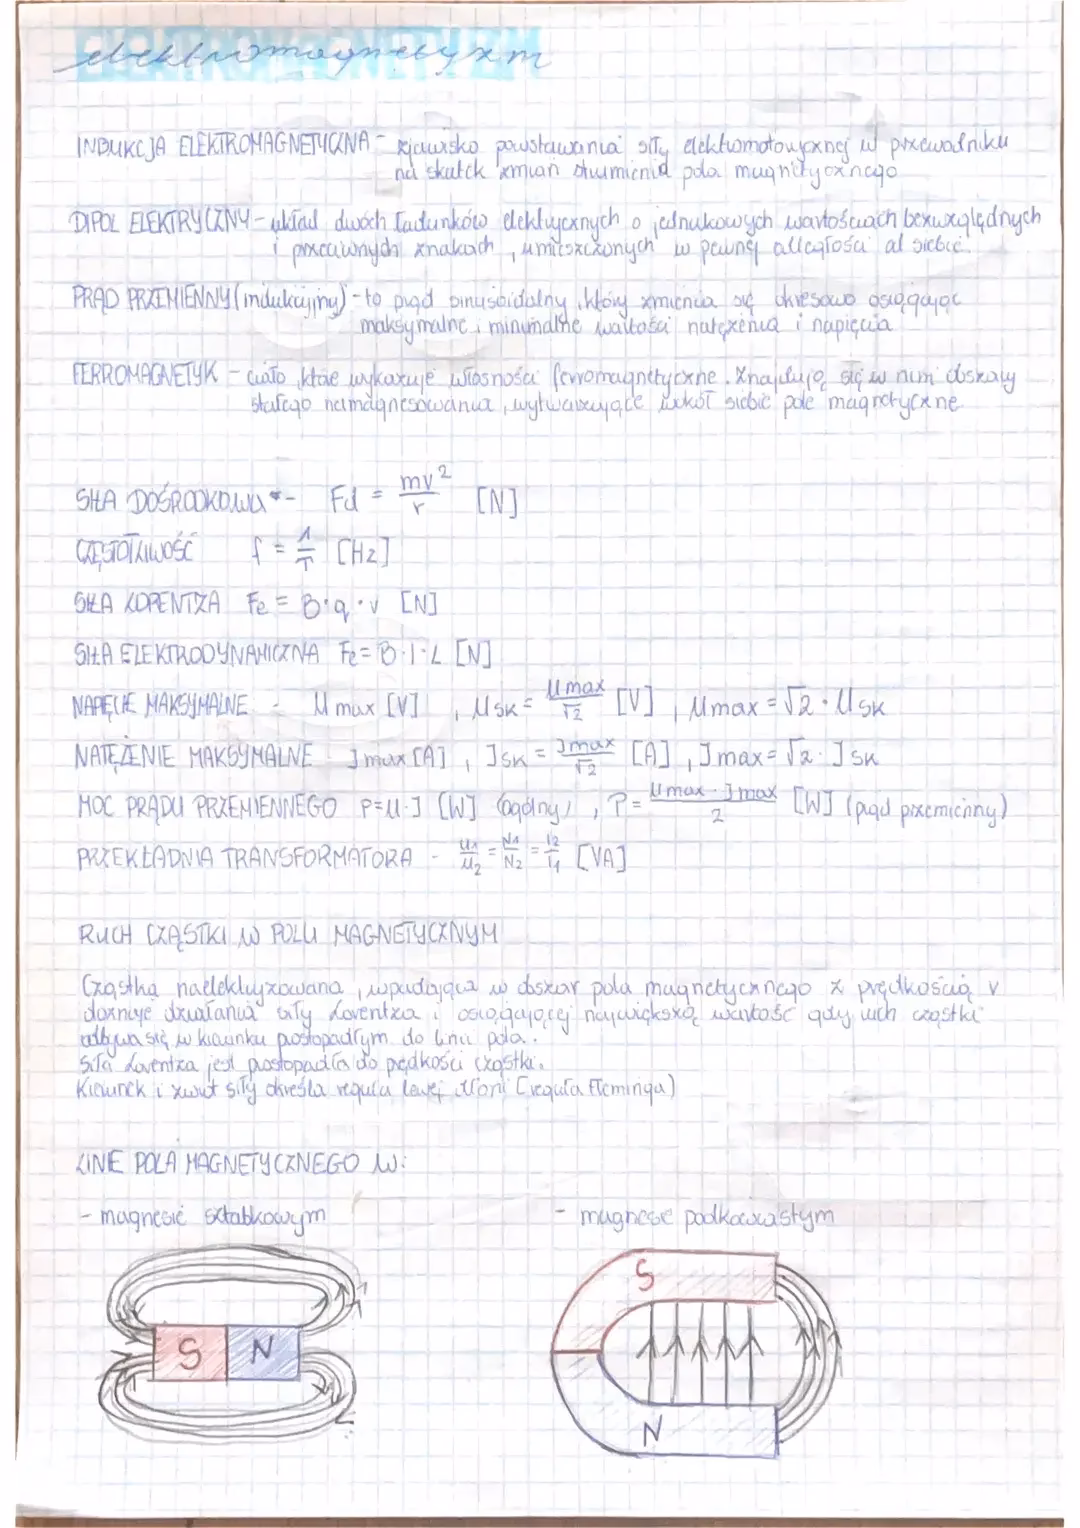 elektromagnetyzm
INDUKCJA ELEKTROMAGNETYCZNA - zjawisko powstawania siły elektromotorycznej w przewodniku
na skutek zmian strumienia pola magnetycznego
DIPOL ELEKTRYCZNY - układ dwóch ładunków elektrycznych o jednakowych wartościach bezwzględnych
i przeciwnych znakach, umieszczonych w pewnej odległości od siebie.
PRĄD PRZEMIENNY (indukcyjny) - to prąd sinusoidalny, który zmienia się okresowo osiągając
maksymalne i minimalne wartości natężenia i napięcia
FERROMAGNETYK - ciało, które wykazuje własności ferromagnetyczne. Znajdują się w nim obszary
stałego namagnesowania, wytwarzające wokół siebie pole magnetyczne
SIŁA DOŚRODKOWA - Fd = mv²/r [N]
CZĘSTOTLIWOŚĆ f = 1/T [Hz]
SIŁA LORENTZA Fe = B·q·v [N]
SIŁA ELEKTRODYNAMICZNA Fe = B·I·L [N]
NAPIĘCIE MAKSYMALNE - Umax [V], Usk = Umax/√2 [V], Umax = √2 · Usk
NATĘŻENIE MAKSYMALNE - Jmax [A], Jsk = Jmax/√2 [A], Jmax = √2 · Jsk
MOC PRĄDU PRZEMIENNEGO P=U·J [W] (ogólny), P = Umax · Jmax/2 [W] (prąd przemienny)
PRZEKŁADNIA TRANSFORMATORA - U1/U2 = N1/N2 = I2/I1 [VA]
RUCH CZĄSTKI W POLU MAGNETYCZNYM
Cząstka naelektryzowana, wpadająca w obszar pola magnetycznego z prędkością v
doznaje działania siły Lorentza i osiągającej największą wartość gdy ruch cząstki
odbywa się w kierunku prostopadłym do linii pola.
Siła Lorentza jest prostopadła do prędkości cząstki.
Kierunek i zwrot siły określa reguła lewej dłoni (reguła Fleminga)
LINIE POLA MAGNETYCZNEGO W:
- magnesie sztabkowym
- magnesie podkowiastym
S
S N
N